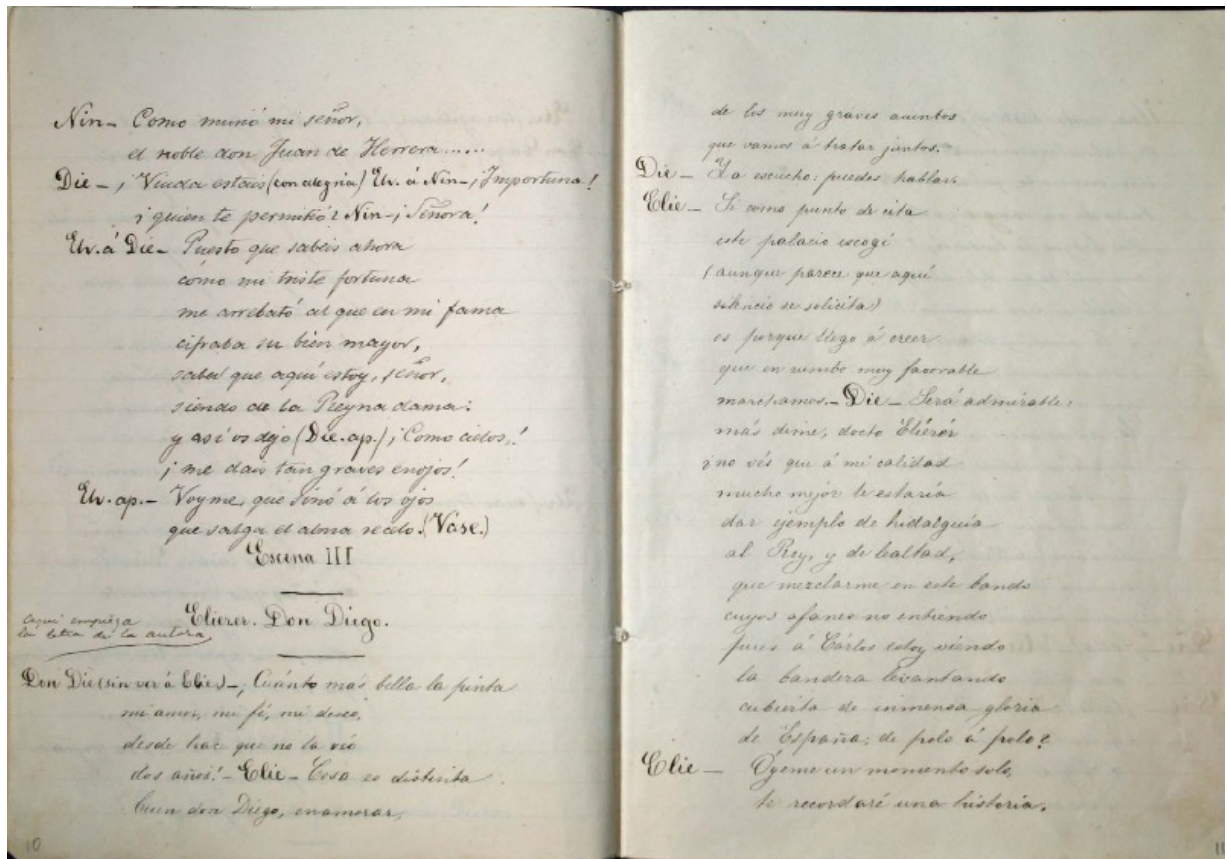 Nin- Como murió mi señor,
el noble don Juan de Herrera......
Die-¡Viuda estais (con alegria) Elv. á Nin-¡Importuna!
¿quien te permitió? Nin-¡Señora!
Elv. á Die- Puesto que sabéis ahora
cómo mi triste fortuna
me arrebató al que en mi fama
cifraba su bien mayor,
sabed que aquí estoy, señor,
siendo de la Reyna dama:
y así os dejo (Die. ap.) ¡Como cielos,!
¡me dais tan graves enojos!
Elv. ap.- Voyme, que sinó á los ojos
que salga el alma recelo. (Váse.)
Escena III
Aquí empieza
la letra de la autora
Eliezer. Don Diego.
Don Die (sin ver á Elie)-¡Cuánto más bella la pinta
mi amor, mi fé, mi deseo,
desde hac que no la veo
dos años!- Elie- Cosa es distinta
buen don Diego, enamorar,
10
de los muy gráves asuntos
que vamos á tratar juntos.
Die- Ya escucho: puedes hablar.
Elie- Si como punto de cita
este palacio escogí
(aunque parece que aquí
silencio se solicita)
es porque llego á creer
que en rumbo muy favorable
marchamos.- Die- Será admirable:
más dime, docto Eliézér
¿no vés que á mi calidad
mucho mejor le estaría
dar ejemplo de hidalguía
al Rey, y de lealtad,
que mezclarme en este bando
cuyos afanes no entiendo
pues á Cárlos estoy viendo
la bandera levantando
cubierta de inmensa gloria
de España; de polo á polo?
Elie- Óyeme un momento solo,
te recordaré una historia.
11